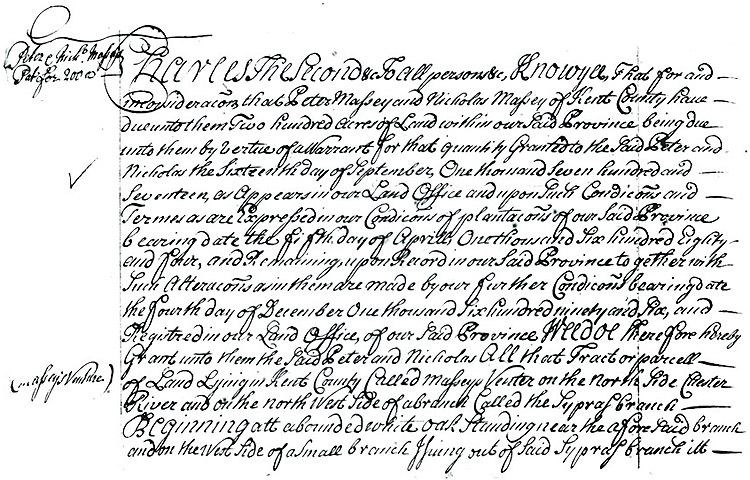 Peter & Nich.o Massey
Pat. for 200 a
Charles The Second &c To all persons &c, Know yee, That for and
in consideracon that Peter Massey and Nicholas Massey of Kent County have
due unto them Two hundred acres of Land within our Said Province being due
unto them by Vertue of a Warrant for that quantity Granted to the Said Peter and
Nicholas the Sixteenth day of September, One thousand Seven hundred and
Seventeen, as appears in our Land Office and upon Such Condicons and
Termes as are Expressed in our Condicons of plantacons of our Said Province
bearing date the fifth day of Aprill, One thousand Six hundred Eighty
and four, and Remaining upon Record in our Said Province together with
Such Alteracons as in them are made by our further Condicons bearing date
the fourth day of December One thousand Six hundred ninety and Six, and
Registred in our Land Office, of our Said Province Wee doe therefore hereby
Grant unto them the Said Peter and Nicholas All that Tract or parcell
Massey's Venture
of Land Lying in Kent County Called Masseys Venter on the North Side Chester
River and on the north West Side of a branch Called the Sypras branch
Beginning att a bounded white oak Standing near the afore Said branch
and on the West Side of a Small branch Issuing out of Said Sypras branch itt